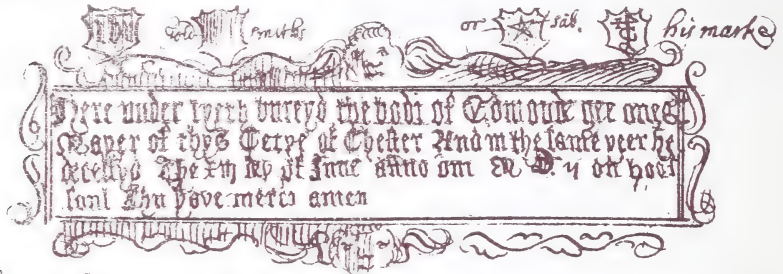 Gold Smiths or sab. his marke
Here under lyeth bureyd the bodi of Edmond gee ones
Mayer of thys Cetye of Chester And in the same yeer he
decessyd The day of June anno dni M D. on hoos
soul Jhu have merci amen